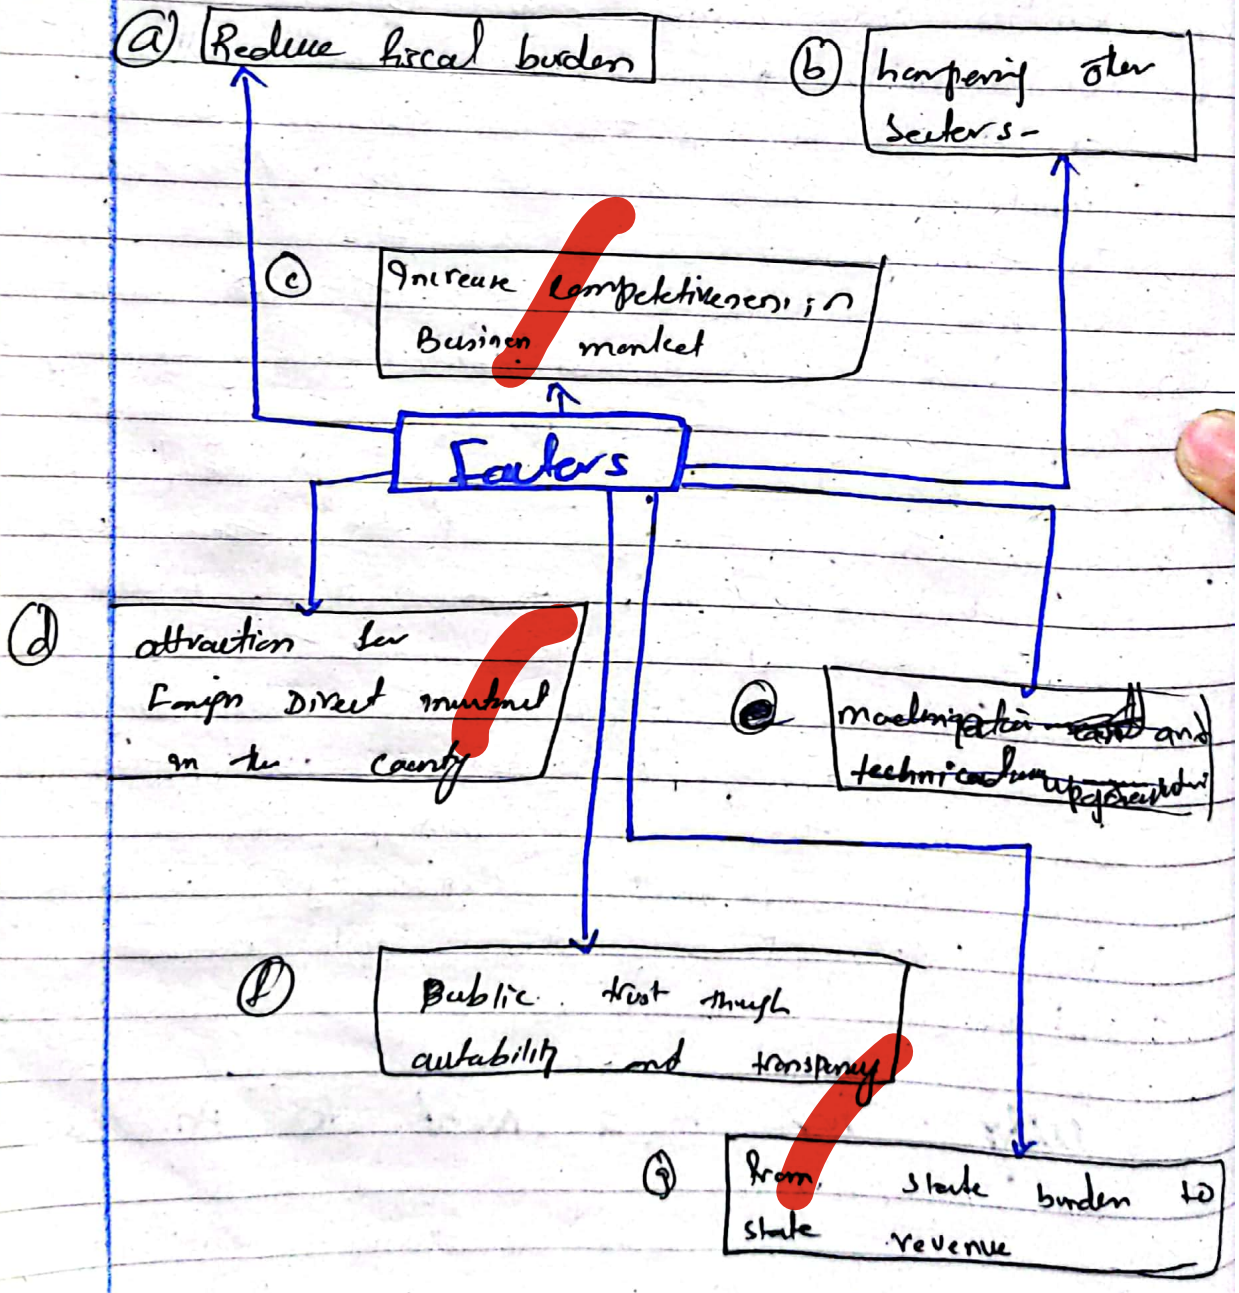 (a) Reduce fiscal burden
(b) hampering other
Secters-
(c) Increase competetiveness in
Business market
Facters
(d) attraction for
Foreign Direct investment
in the country
modernization and
technical
(f) Public trust though
autability and transparency
(g) From state burden to
state revenue